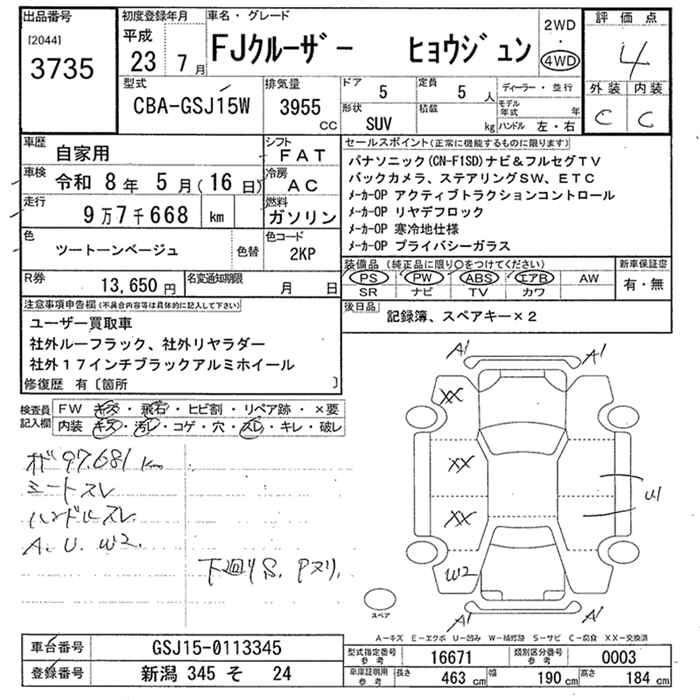 出品番号
[2044]
3735
初度登録年月
平成
23 7月
車名・グレード
FJクルーザー ヒョウジュン
2WD
4WD
評価点
4
外装 内装
C C
型式
CBA-GSJ15W
排気量
3955
CC
ドア 5
定員 5 人
形状
SUV
積載
kg
ディーラー・並行
モデル年式 年
ハンドル 左・右
車歴
自家用
シフト
FAT
車検
令和 8年 5月(16日)
冷房
AC
走行
9万7千668 km
燃料
ガソリン
色
ツートーンベージュ
色替
色コード
2KP
R券
13,650円
名変通知期限
月 日
セールスポイント(正常に機能するものに限る)
パナソニック(CN-F1SD)ナビ&フルセグTV
バックカメラ、ステアリングSW、ETC
メーカーOP アクティブトラクションコントロール
メーカーOP リヤデフロック
メーカーOP 寒冷地仕様
メーカーOP プライバシーガラス
装備品(純正品に限り○をつけてください)
PS PW ABS エアB AW
SR ナビ TV カワ
新車保証書
有・無
後日品
記録簿、スペアキー×2
注意事項申告欄(不具合内容等は具体的に記入して下さい)
ユーザー買取車
社外ルーフラック、社外リヤラダー
社外17インチブラックアルミホイール
修復歴 有〔箇所 〕
検査員
記入欄
FW キズ・飛石・ヒビ割・リペア跡・×要
内装 キズ・汚レ・コゲ・穴・スレ・キレ・破レ
オド97.681km
シートスレ
ハンドルスレ
A.U.W2.
下廻りS. Pヌリ.
A1 A1
XX
XX
XX
W2
U1
A1 A1
スペア
A-キズ E-エクボ U-凹み W-補修跡 S-サビ C-腐食 XX-交換済
車台番号
GSJ15-0113345
登録番号
新潟 345 そ 24
型式指定番号
参考
16671
類別区分番号
参考
0003
車庫証明用
参考
長さ 463 cm
幅 190 cm
高さ 184 cm